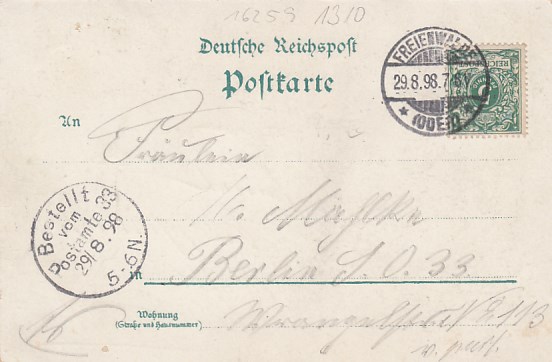 16259 1310
Deutsche Reichspost
Postkarte
FREIENWALDE
29.8.98.7-8V.
* (ODER) *
REICHSPOST
5
An
Fräulein
Bestellt
vom
Postamte 33
29/8.98
5-6N.
in Berlin S. O. 33
Wohnung
(Straße und Hausnummer)
Wrangelstraße No 113